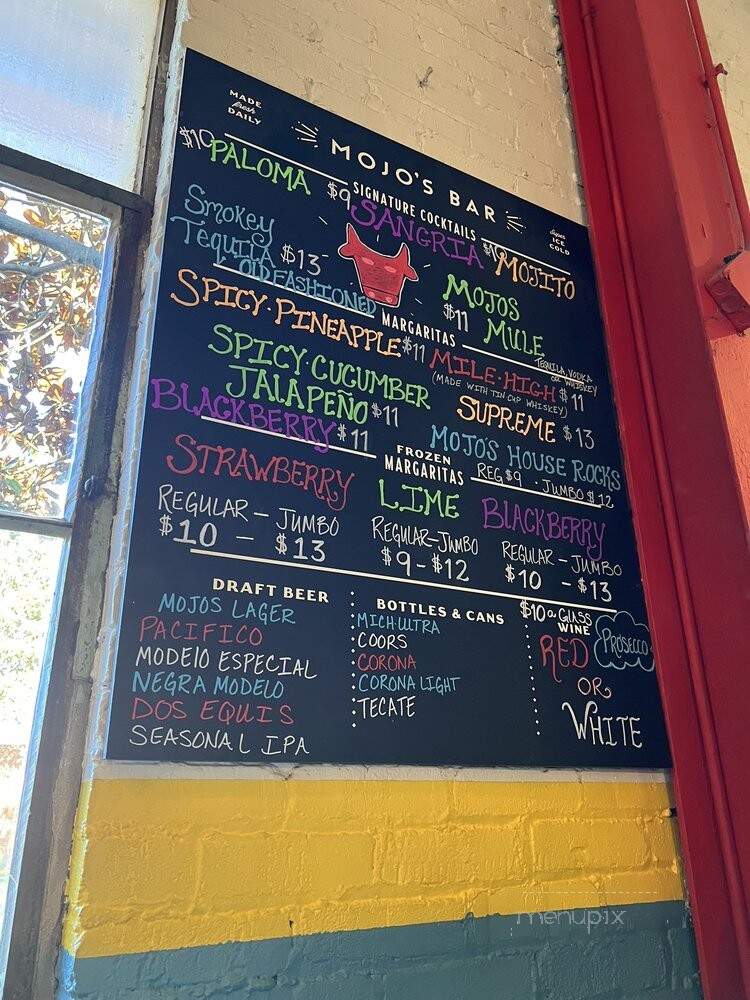 MADE
fresh
DAILY
MOJO'S BAR
ICE
COLD
SIGNATURE COCKTAILS
$10 PALOMA
$9 SANGRIA
MOJITO
Smokey
Tequila $13
OLD FASHIONED
MOJOS
$11 MULE
TEQUILA, VODKA
OR WHISKEY
MARGARITAS
SPICY·PINEAPPLE $11
MILE·HIGH $11
(MADE WITH TIN CUP WHISKEY)
SPICY·CUCUMBER
JALAPEÑO $11
SUPREME $13
BLACKBERRY $11
MOJO'S HOUSE ROCKS
REG $9 · JUMBO $12
FROZEN
MARGARITAS
STRAWBERRY
REGULAR - JUMBO
$10 - $13
LIME
REGULAR-JUMBO
$9-$12
BLACKBERRY
REGULAR - JUMBO
$10 - $13
DRAFT BEER
MOJOS LAGER
PACIFICO
MODElO ESPECIAL
NEGRA MODELO
DOS EQUIS
SEASONAL IPA
BOTTLES & CANS
MICH ULTRA
COORS
CORONA
CORONA LIGHT
TECATE
$10 a GLASS
WINE
RED
PROSECCO
OR
WHITE
menupix